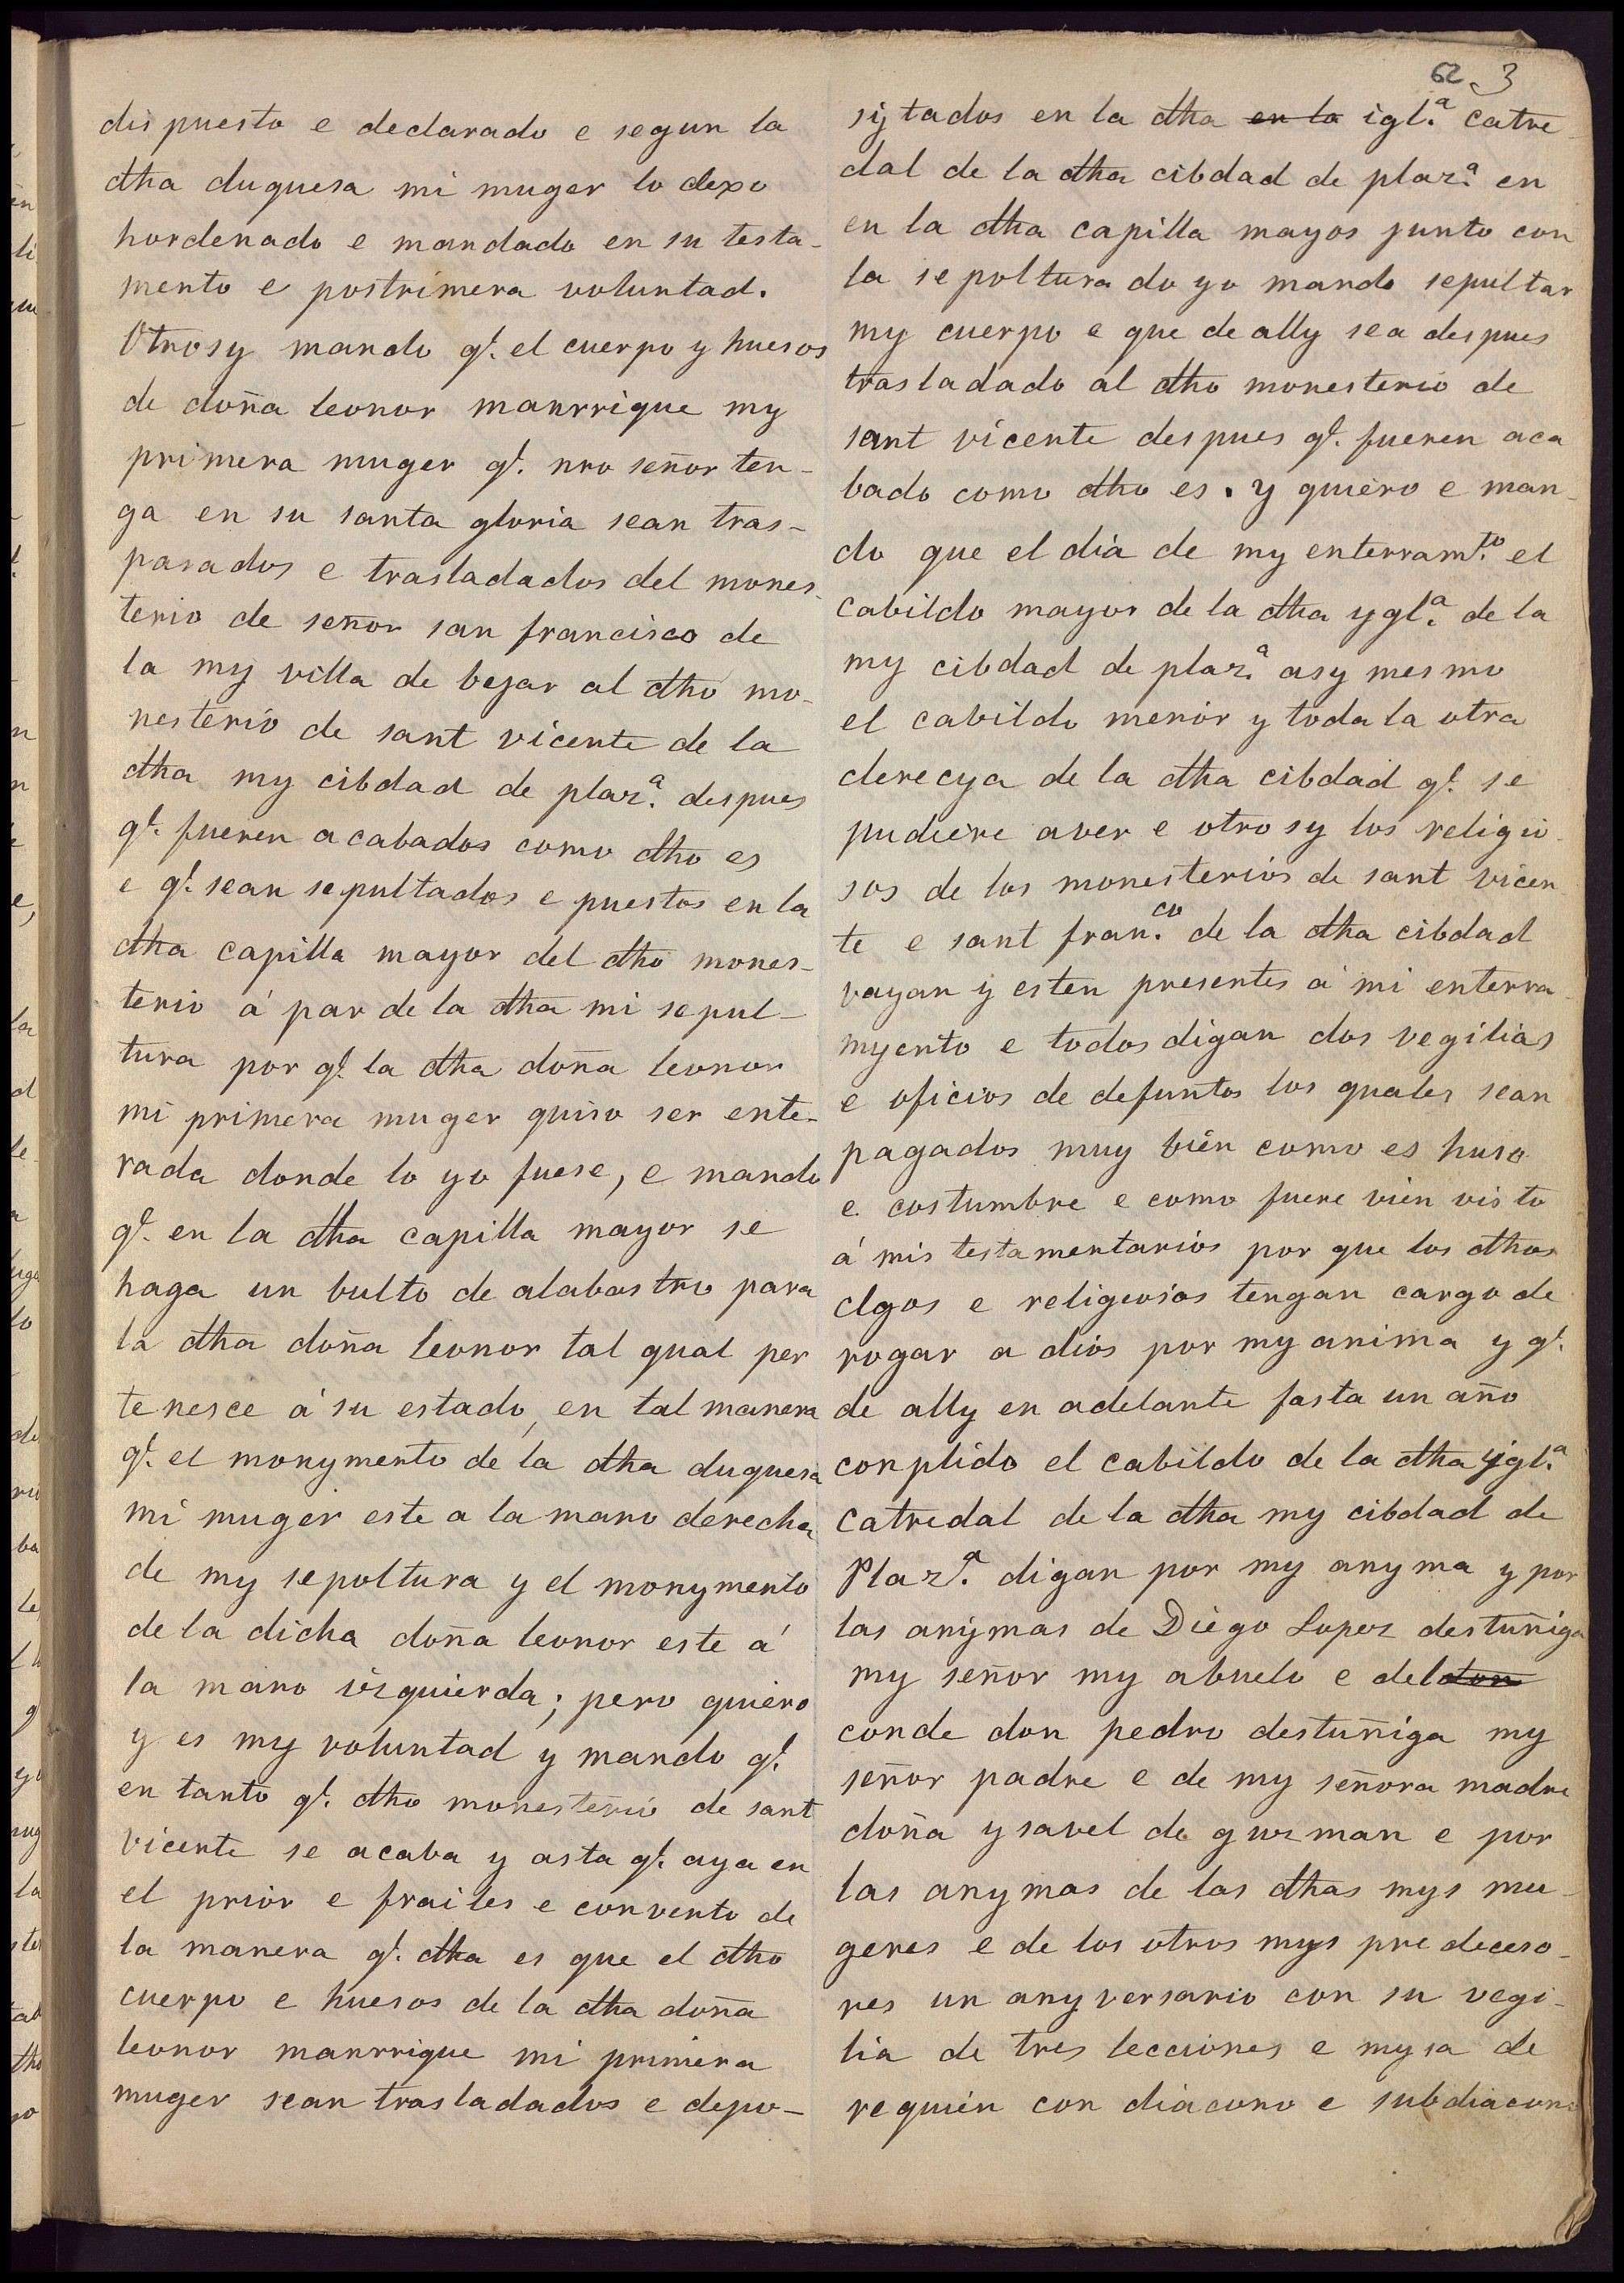 62 3
dispuesto e declarado e segun la
dha duquesa mi muger lo dexo
hordenado e mandado en su testa-
mento e postrimera voluntad.
Otrosy mando q.e el cuerpo y huesos
de doña leonor manrrique my
primera muger q.e nro señor ten-
ga en su santa gloria sean tras-
pasados e trasladados del mones-
terio de señor san francisco de
la my villa de bejar al dho mo-
nesterio de sant vicente de la
dha my cibdad de plaz.a despues
q.e fueren acabados como dho es
e q.e sean sepultados e puestos en la
dha capilla mayor del dho mones-
terio á par de la dha mi sepul-
tura por q.e la dha doña leonor
mi primera muger quiso ser ente-
rada donde lo yo fuese, e mando
q.e en la dha capilla mayor se
haga un bulto de alabastro para
la dha doña leonor tal qual per
tenesce á su estado, en tal manera
q.e el monymento de la dha duquesa
mi muger este a la mano derecha
de my sepoltura y el monymento
de la dicha doña leonor este á
la mano izquierda; pero quiero
y es my voluntad y mando q.e
en tanto q.e dho monesterio de sant
vicente se acaba y asta q.e aya en
el prior e frailes e convento de
la manera q.e dha es que el dho
cuerpo e huesos de la dha doña
leonor manrrique mi primera
muger sean trasladados e depo-
sytados en la dha en la igl.a catre-
dal de la dha cibdad de plaz.a en
en la dha capilla mayos junto con
la sepoltura do yo mando sepultar
my cuerpo e que de ally sea despues
trasladado al dho monesterio de
sant vicente despues q.e fueren aca
bado como dho es. y quiero e man-
do que el dia de my enterram.to el
cabildo mayor de la dha ygl.a de la
my cibdad de plaz.a asy mesmo
el cabildo menor y toda la otra
derecya de la dha cibdad q.e se
pudiere aver e otrosy los religio-
sos de los monesterios de sant vicen
te e sant fran.co de la dha cibdad
vayan y esten presentes á mi enterra-
myento e todos digan dos vegilias
e oficios de defuntos los quales sean
pagados muy bien como es huso
e costumbre e como fuere vien visto
á mis testamentarios por que los dhos
clgos e religiosos tengan cargo de
rogar a dios por my anima y q.e
de ally en adelante fasta un año
conplido el cabildo de la dha ygl.a
catredal de la dha my cibdad de
Plaz.a digan por my anyma y por
las anymas de Diego Lopez destuñiga
my señor my abuelo e del don
conde don pedro destuñiga my
señor padre e de my señora madre
doña ysavel de guzman e por
las anymas de las dhas mys mu-
geres e de los otros mys predeceso-
res un anyversario con su vegi-
lia de tres lecciones e mysa de
requien con diacono e subdiacono